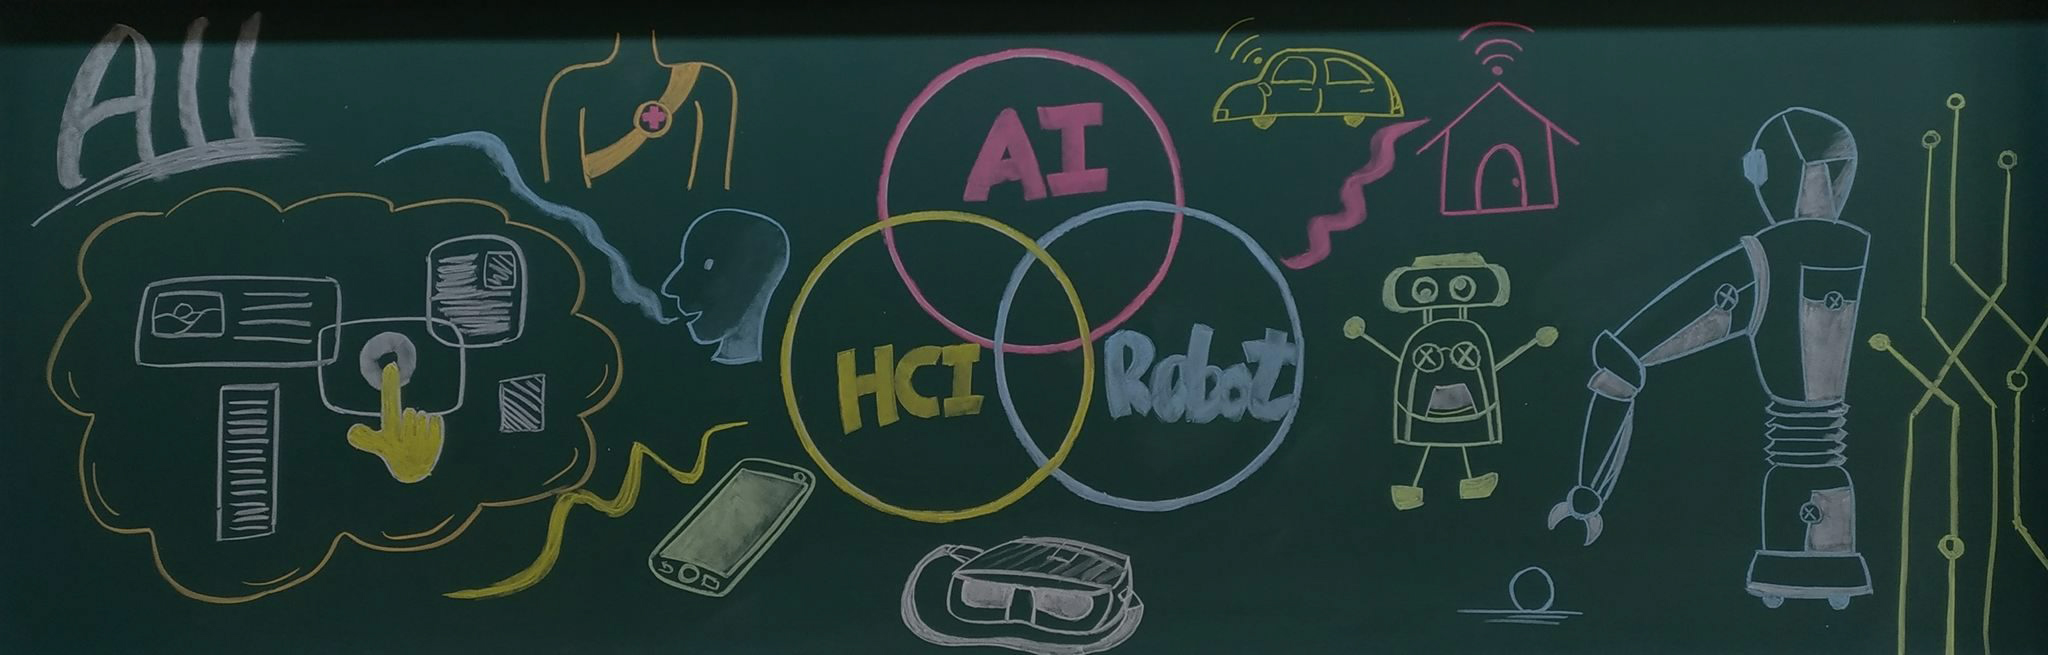 All
AI
HCI
Robot